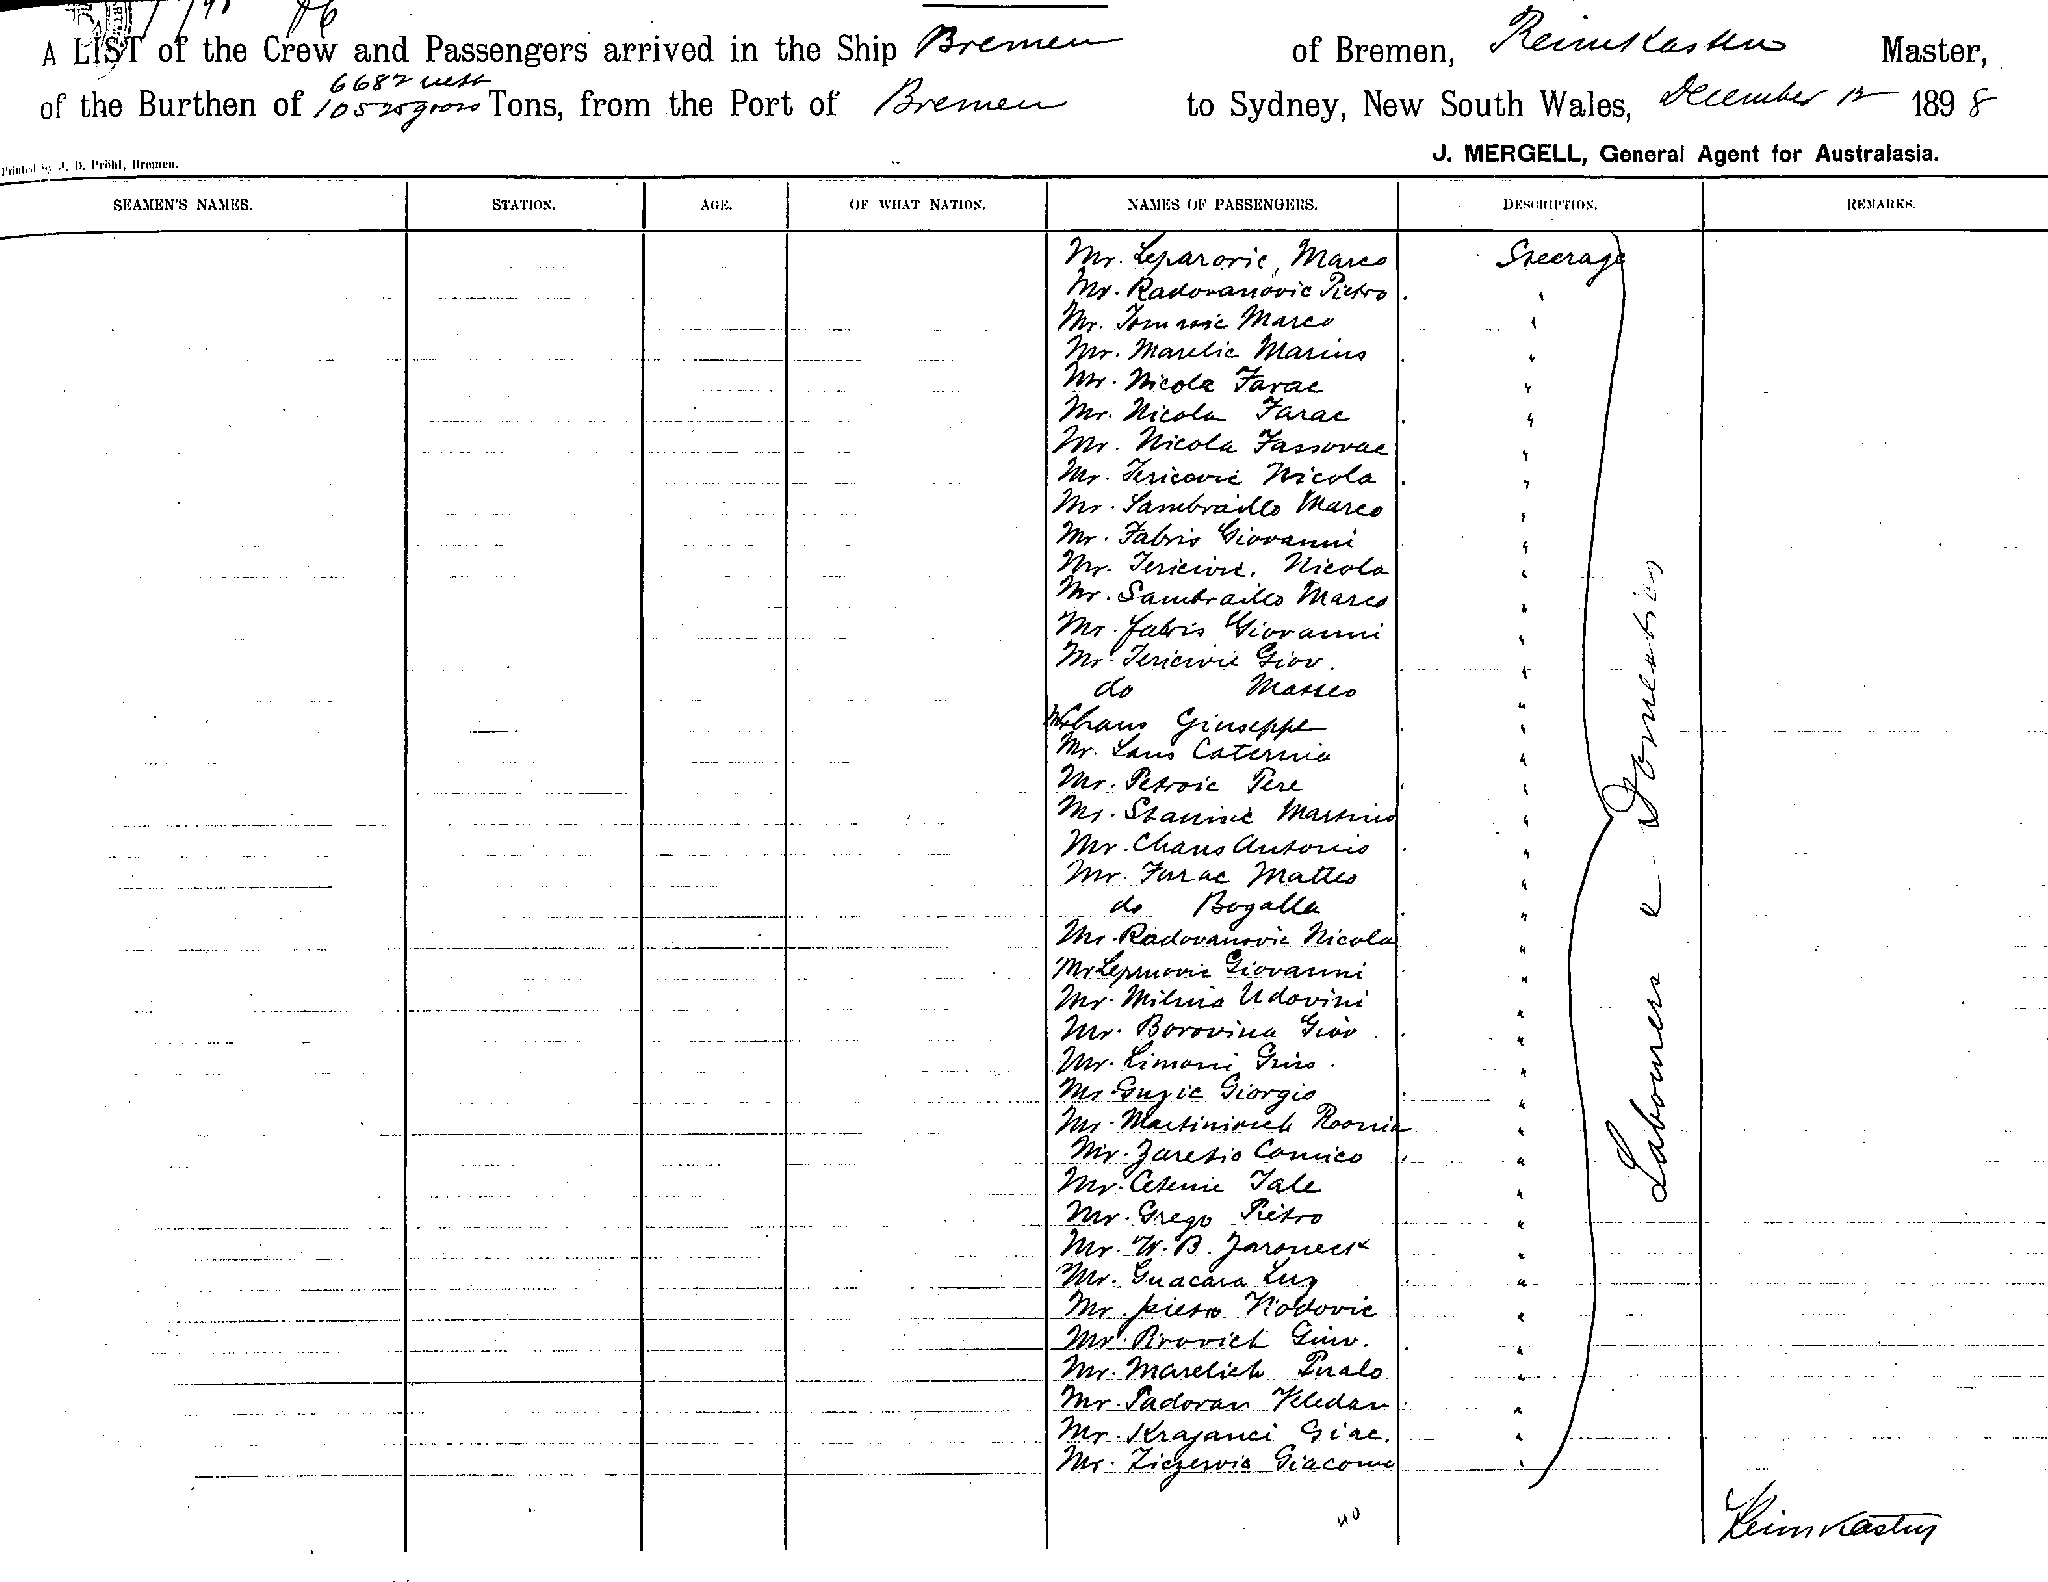 A LIST of the Crew and Passengers arrived in the Ship Bremen of Bremen, Reimkasten Master,
6682 nett
of the Burthen of 10525 gross Tons, from the Port of Bremen to Sydney, New South Wales, December 12 1898
Printed by J. D. Pröhl, Bremen.
J. MERGELL, General Agent for Australasia.
SEAMEN'S NAMES. STATION. AGE. OF WHAT NATION. NAMES OF PASSENGERS. DESCRIPTION. REMARKS.
Mr. Leparovic, Marco Steerage
Mr. Radovanovic Pietro "
Mr. Tomasic Marco "
Mr. Marelic Marius "
Mr. Nicola Farac "
Mr. Nicola Farac "
Mr. Nicola Fassovac "
Mr. Tericevic Nicola "
Mr. Sambraillo Marco "
Mr. Fabris Giovanni "
Mr. Tericivic. Nicola "
Mr. Sambraillo Marco "
Mr. Fabris Giovanni "
Mr. Tericivic Giov. "
do Matteo "
Mr. Chans Giuseppe "
Mr. Lans Caterina "
Mr. Petrovic Pere "
Mr. Stanisic Martino "
Mr. Chans Antonio "
Mr. Farac Matteo "
do Bogalla "
Mr. Radovanovic Nicola "
Mr Leprnovic Giovanni "
Mr. Milina Udovini "
Mr. Borovina Giov "
Mr. Limoni "
Mr. Guzic Giorgio "
Mr. Martinivich "
Mr. Zaretio Comico "
Mr. Cetenic Tale "
Mr. Grego Pietro "
Mr. W. B. Jaroneck "
Mr. Guacara Luz "
Mr. pietro Kodovic "
Mr. Brovich Giov. "
Mr. Marelich Pualo "
Mr. Padovan Veledan "
Mr. Krajanci Giac. "
Mr. Giacomo "
Labourers & Domestics
40
Reimkasten